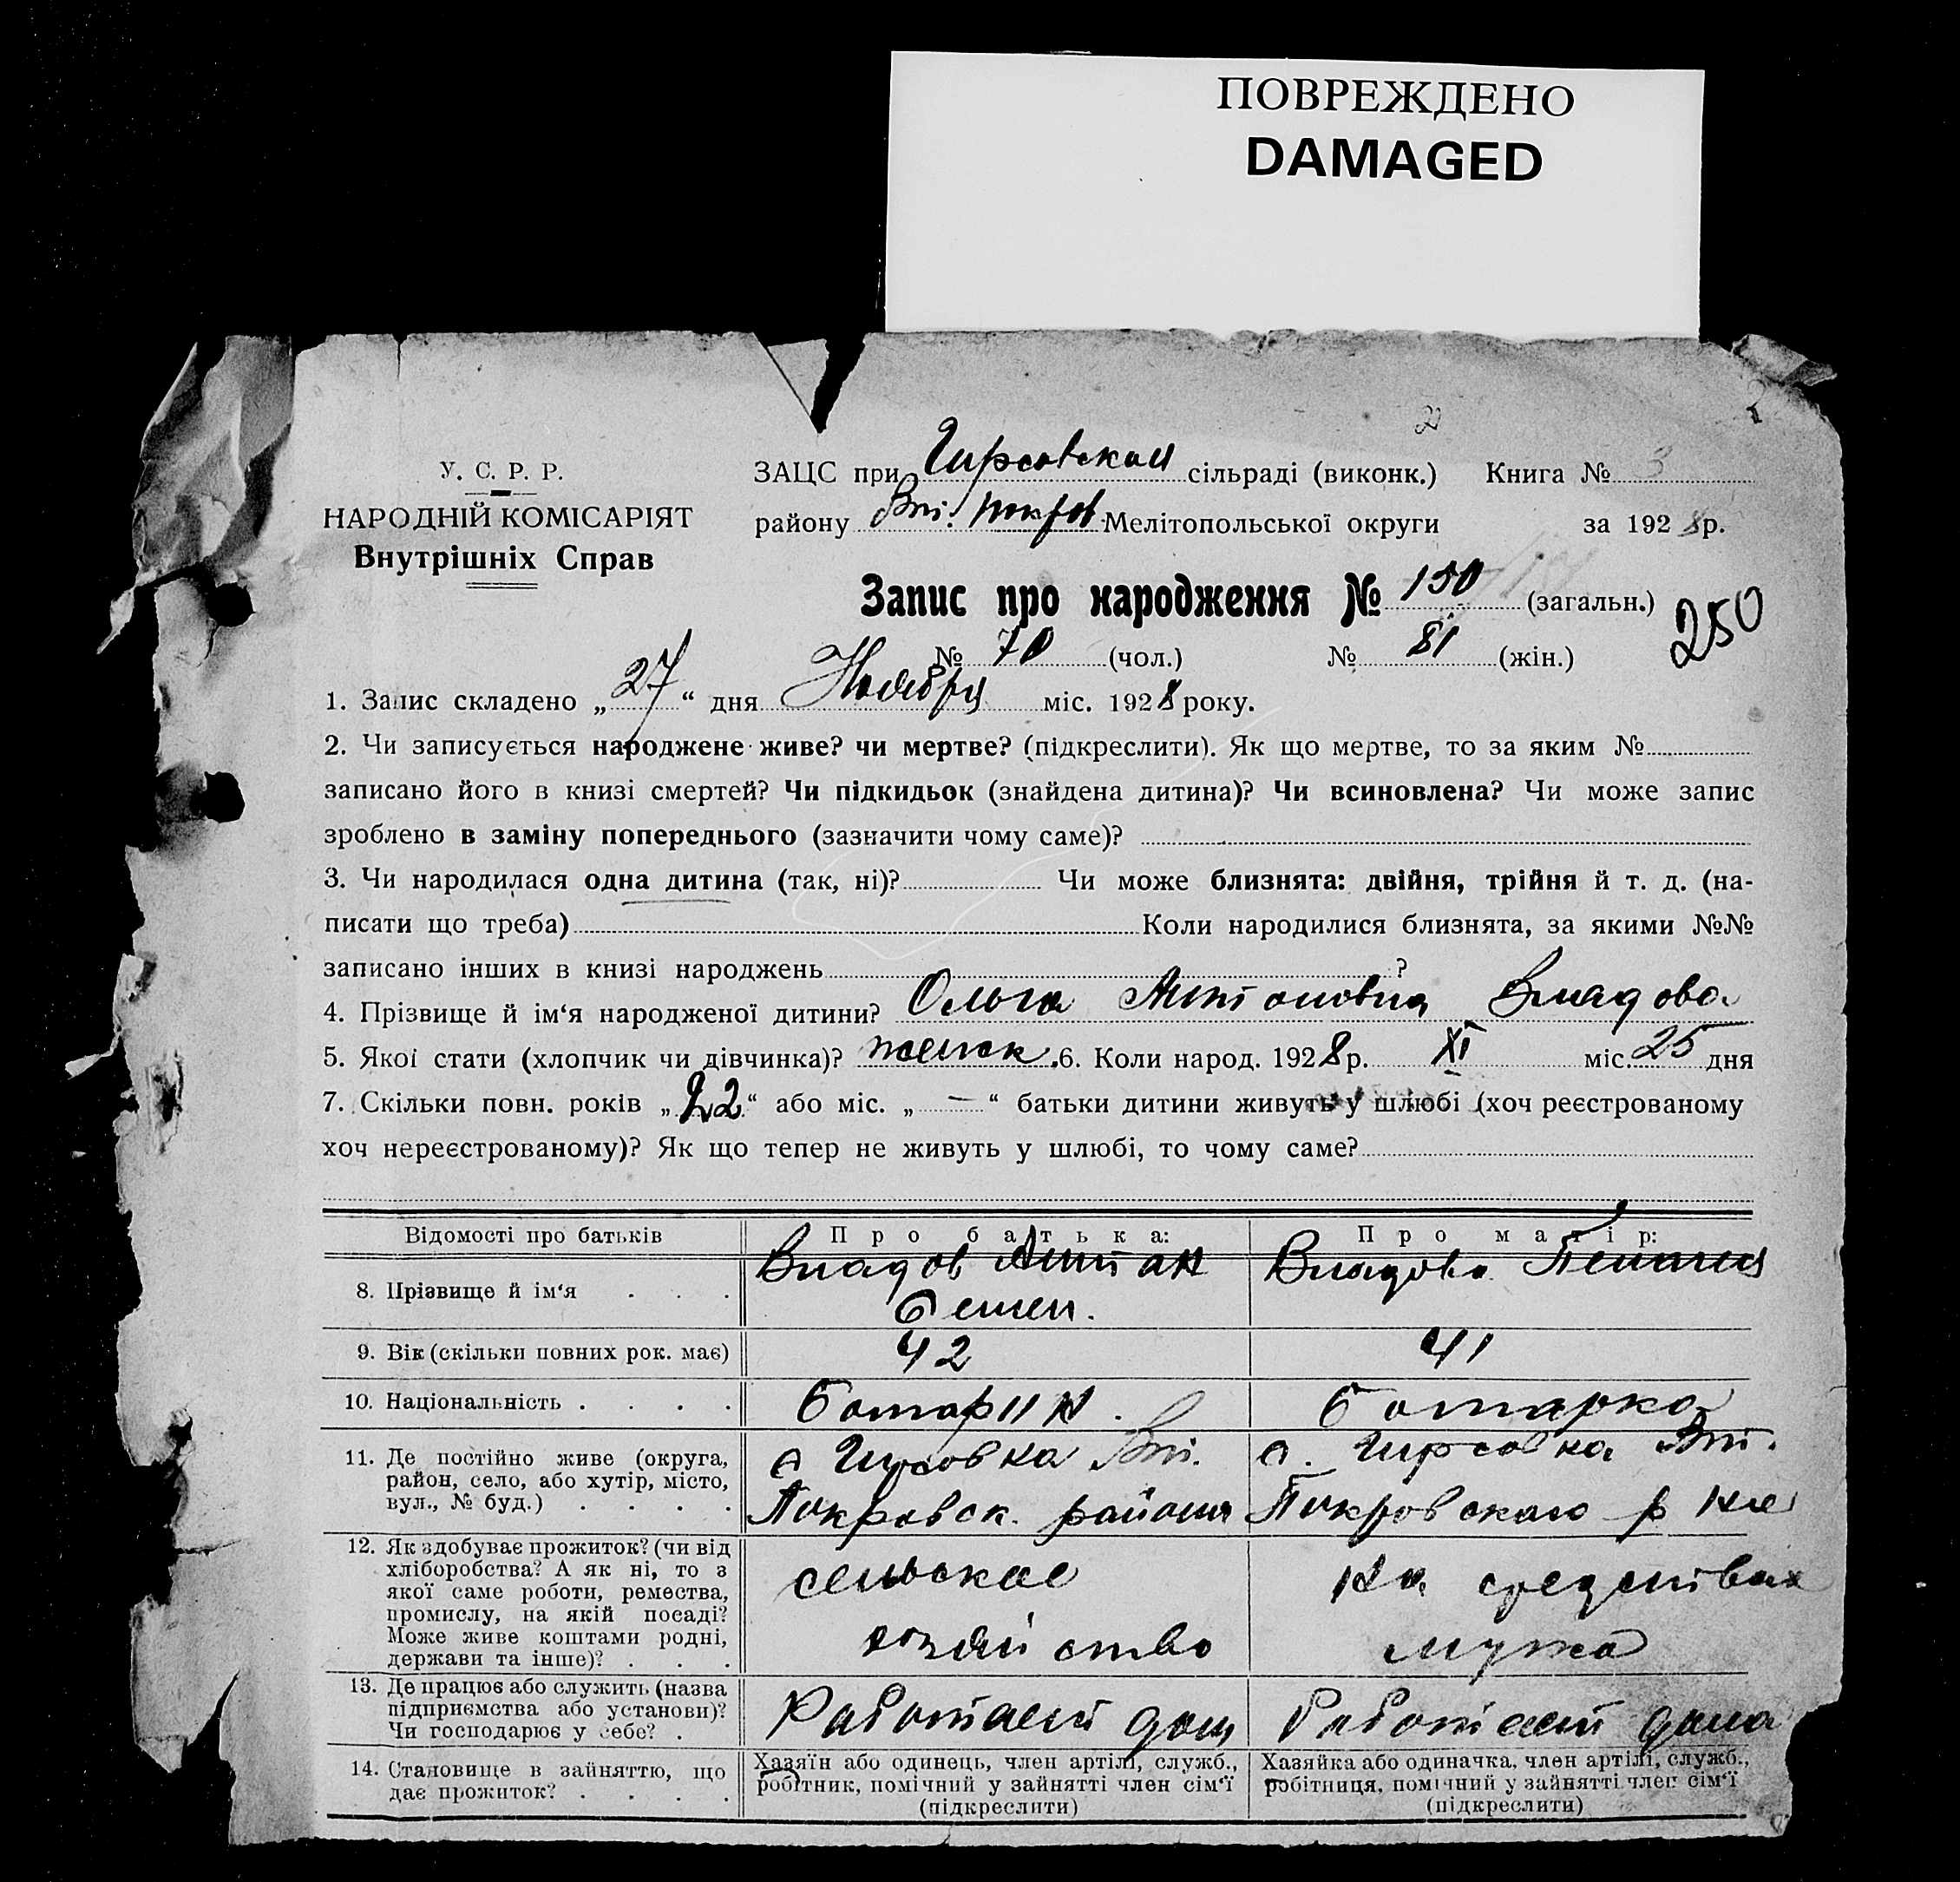 ПОВРЕЖДЕНО
DAMAGED
У. С. Р. Р.
НАРОДНІЙ КОМІСАРІЯТ
Внутрішніх Справ
ЗАЦС при Гирсовской сільраді (виконк.) Книга № 3
району Вт. Покров. Мелітопольської округи за 1928 р.
Запис про народження № 150 (загальн.)
250
№ 70 (чол.) № 81 (жін.)
1. Запис складено „27“ дня Ноября міс. 1928 року.
2. Чи записується народжене живе? чи мертве? (підкреслити). Як що мертве, то за яким №
записано його в книзі смертей? Чи підкидьок (знайдена дитина)? Чи всиновлена? Чи може запис
зроблено в заміну попереднього (зазначити чому саме)?
3. Чи народилася одна дитина (так, ні)? Чи може близнята: двійня, трійня й т. д. (на-
писати що треба) Коли народилися близнята, за якими №№
записано інших в книзі народжень ?
4. Прізвище й ім‘я народженої дитини? Ольга Антоновна Владова
5. Якої стати (хлопчик чи дівчинка)? женск. 6. Коли народ. 1928 р. XI міс. 25 дня
7. Скільки повн. років „22“ або міс. „—“ батьки дитини живуть у шлюбі (хоч реєстрованому
хоч нереєстрованому)? Як що тепер не живуть у шлюбі, то чому саме?
Відомості про батьків Про батька: Про матір:
8. Прізвище й ім‘я . . . Владов Антон Семен. Владова
9. Вік (скільки повних рок. має) 42 41
10. Національність . . . . болгарин. болгарка
11. Де постійно живе (округа,
район, село, або хутір, місто,
вул., № буд.) . . . .
с Гирсовка Вт.
Покровск. района
с. Гирсовка Вт.
Покровского р на
12. Як здобуває прожиток? (чи від
хліборобства? А як ні, то з
якої саме роботи, ремества,
промислу, на якій посаді?
Може живе коштами родні,
держави та інше)? . . .
сельское
хозяйство
на средствах
мужа
13. Де працює або служить (назва
підприємства або установи)?
Чи господарює у себе? .
Работает дома
Работает дома
14. Становище в зайняттю, що
дає прожиток? . . . .
Хазяїн або одинець, член артілі, служб.,
робітник, помічний у зайнятті член сім‘ї
(підкреслити)
Хазяйка або одиначка, член артілі, служб.,
робітниця, помічний у зайнятті член сім‘ї
(підкреслити)